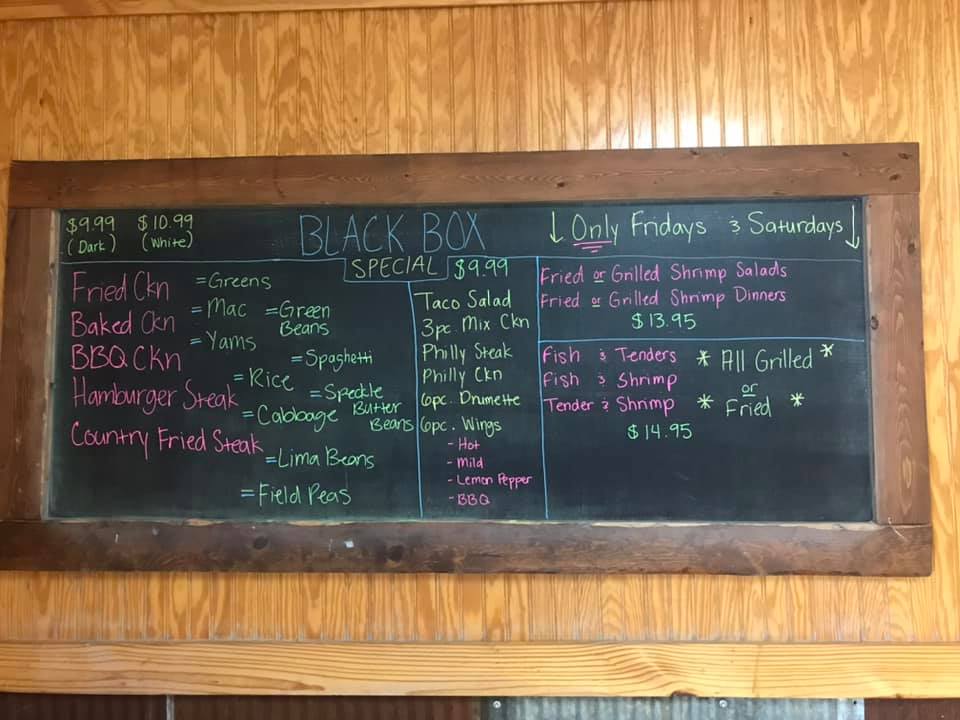 $9.99 $10.99
(Dark) (White)
BLACK BOX
↓ Only Fridays & Saturdays ↓
SPECIAL $9.99
Fried Ckn
Baked Ckn
BBQ Ckn
Hamburger Steak
Country Fried Steak
=Greens
=Mac =Green Beans
=Yams
=Spaghetti
=Rice
=Speckle Butter Beans
=Cabbage
=Lima Beans
=Field Peas
Taco Salad
3pc. Mix Ckn
Philly Steak
Philly Ckn
6pc. Drumette
6pc. Wings
- Hot
- Mild
- Lemon Pepper
- BBQ
Fried or Grilled Shrimp Salads
Fried or Grilled Shrimp Dinners
$13.95
Fish & Tenders
Fish & Shrimp
Tender & Shrimp
$14.95
* All Grilled *
or
* Fried *